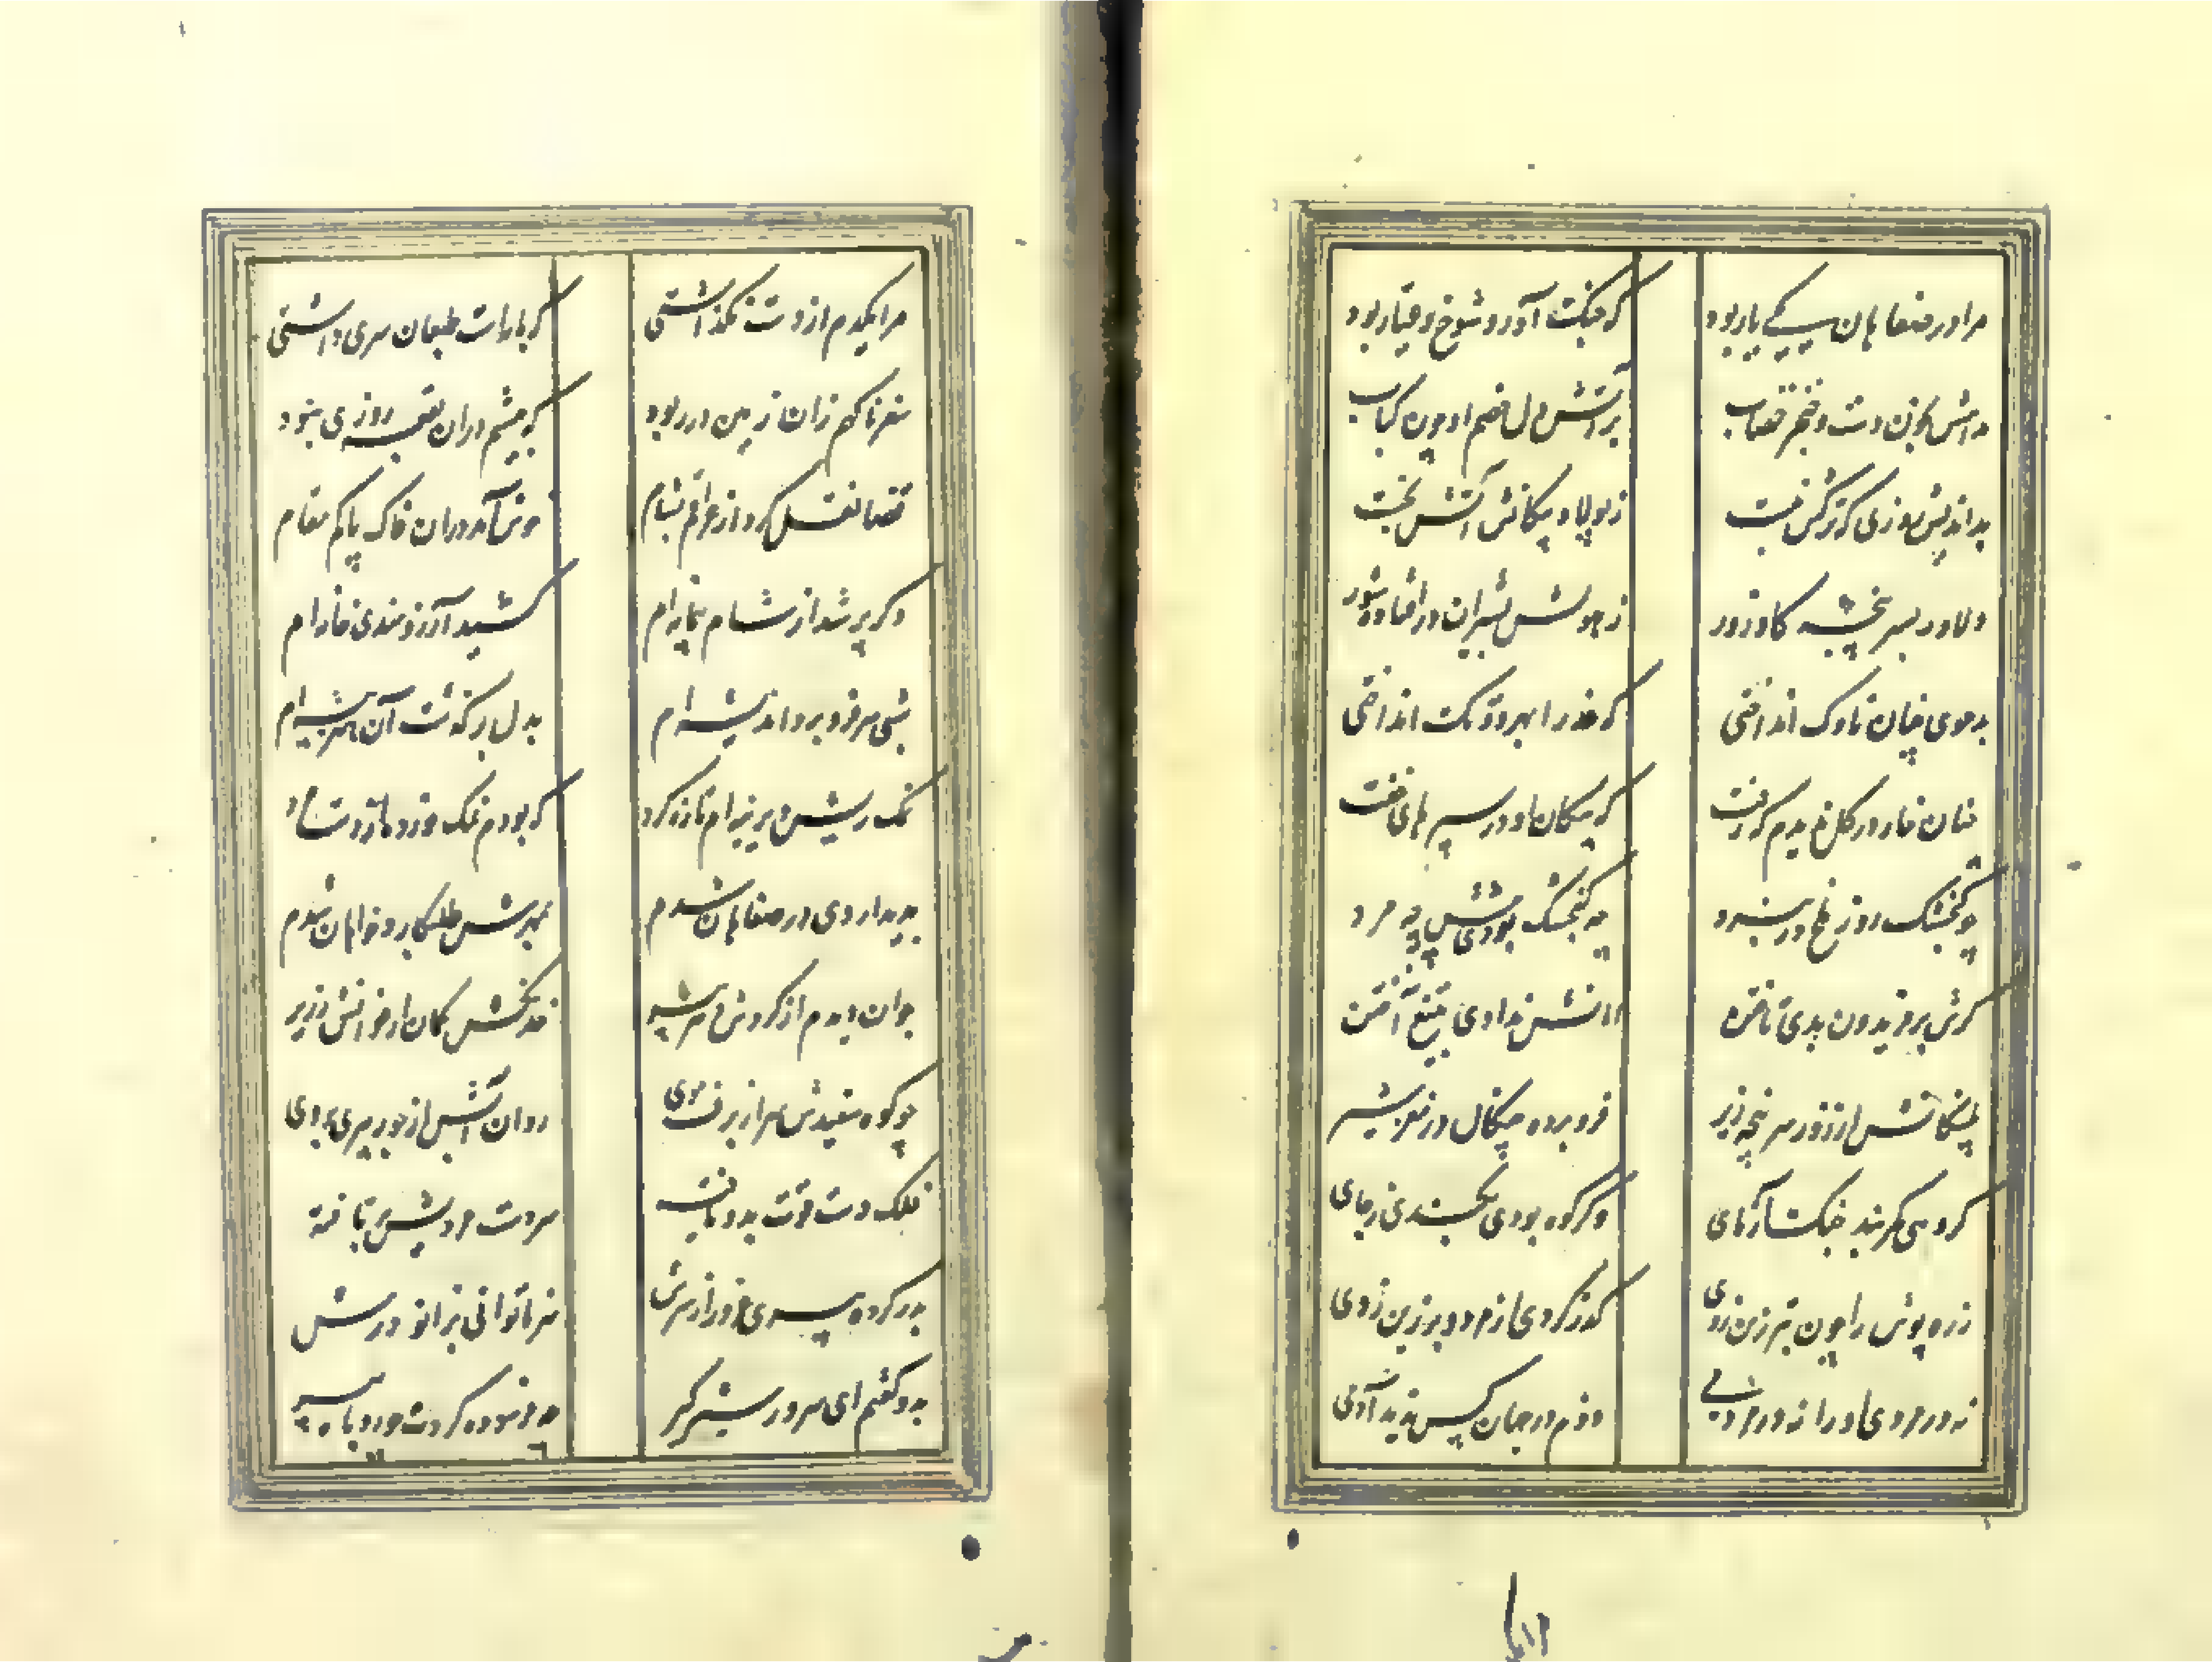 مرا در صفاهان یکی یار بود که جنگ آور و شوخ و عیار بود
مدامش بخون دست و خنجر خضاب بر آتش دل خصم او چون کباب
بداندیش روزی که ترکش نبست ز پولاد پیکانش آتش نجست
دلاور بسر پنجه گاو زور ز هولش بشیران در افتاده شور
بدعوی چنان ناوک انداختی که عذرا بهر انداختی
چنان خار در گل ندیدم که رفت که پیکان او در سپر های جفت
چو گنجشک روز ملخ در نبرد چه گنجشک بودی پیشش چه مرد
گرش بر فریدون بدی تاختن امانش ندادی به تیغ آختن
پلنگانش از زور سر پنجه زیر فرو برده چنگال در مغز شیر
کمربند جنگ آزمای و گر کوه بودی بکندی ز جای
زره پوش را چون تبر زین زدی گذر کردی از مرد و بر زین زدی
نه در مردی او را نه در مردمی دوم در جهان کس ندید آدمی
مرا یکدم از دست نگذاشتی که با راست طبعان سری داشتی
سفر ناگهم زان زمین در ربود که بیشم دران بقعه روزی نبود
قضا نقل کرد از عراقم بشام خوش آمد دران خاک پاکم مقام
دگر پر شد از شام پیمانه ام کشید آرزومندی خانه ام
شبی سر فرو برد اندیشه ام بدل بر گذشت آن هنر پیشه ام
نمک ریش دیرینه ام تازه کرد که بودم نمک خورده از دست مرد
بدیدار وی در صفاهان شدم بمهرش طلبکار و خواهان شدم
جوان دیدم از گردش دهر پیر خدنگش کمان ارغوانش زریر
چو کوه سفیدش سر از برف موی روان آبش از جور پیری بروی
فلک دست قوت بدو یافته سر دست مردیش بر تافته
بدر کرده غرور از سرش سر ناتوانی بزانو درش
بدو گفتم ای سرور شیر گیر چه فرسوده کردت چو روباه پیر